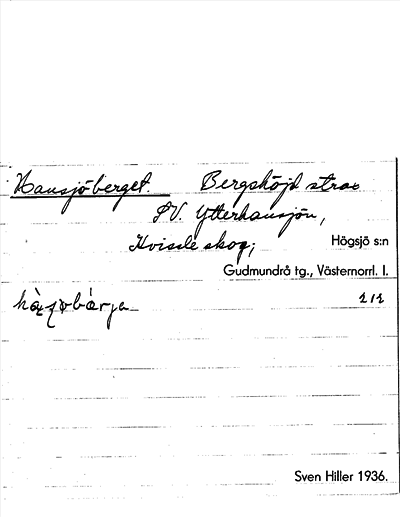 Hansjöberget. Bergshöjd strax
SV. Ytterhansjön,
Kvissle skog; Högsjö s:n
Gudmundrå tg., Västernorrl. l.
212
Sven Hiller 1936.